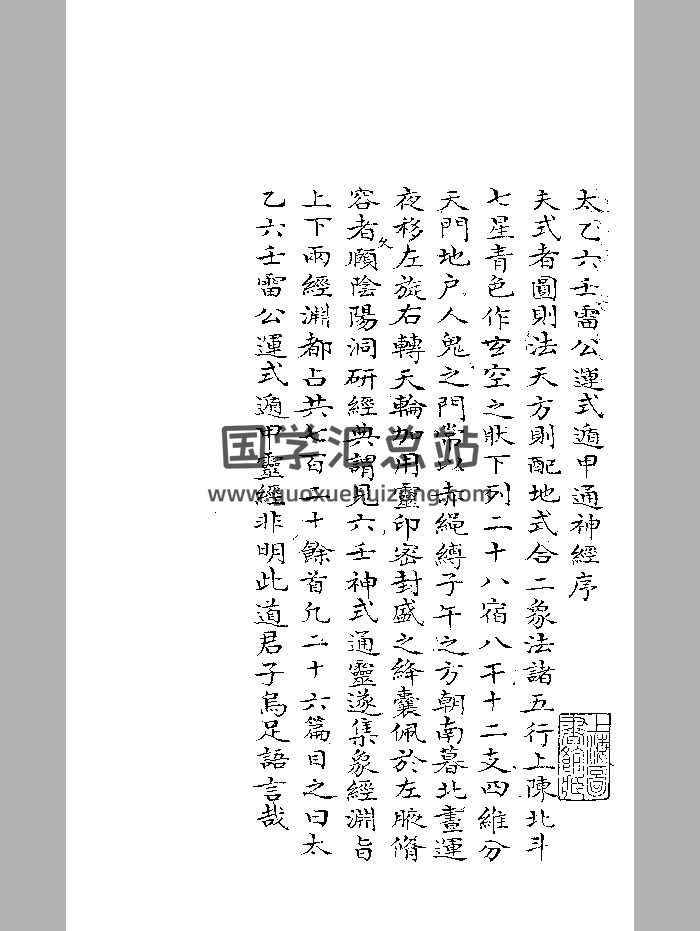 太乙六壬雷公運式遁甲通神經序
夫式者圓則法天方則配地式合二象法諸五行上陳北斗
七星青色作玄空之狀下列二十八宿八干十二支四維分
天門地户人鬼之門常以赤繩縛子午之方朝南暮北晝運
夜移左旋右轉天輪加用靈印密封盛之絳囊佩於左腋脩
久
容者願陰陽洞研經典謂見六壬神式通靈遂集象經淵旨
上下兩經淵都占共七百二十餘首凢二十六篇目之曰太
乙六壬雷公運式遁甲靈經非明此道君子烏足語言哉
上海圖
書館藏
国学汇总站
www.guoxuehuizong.com